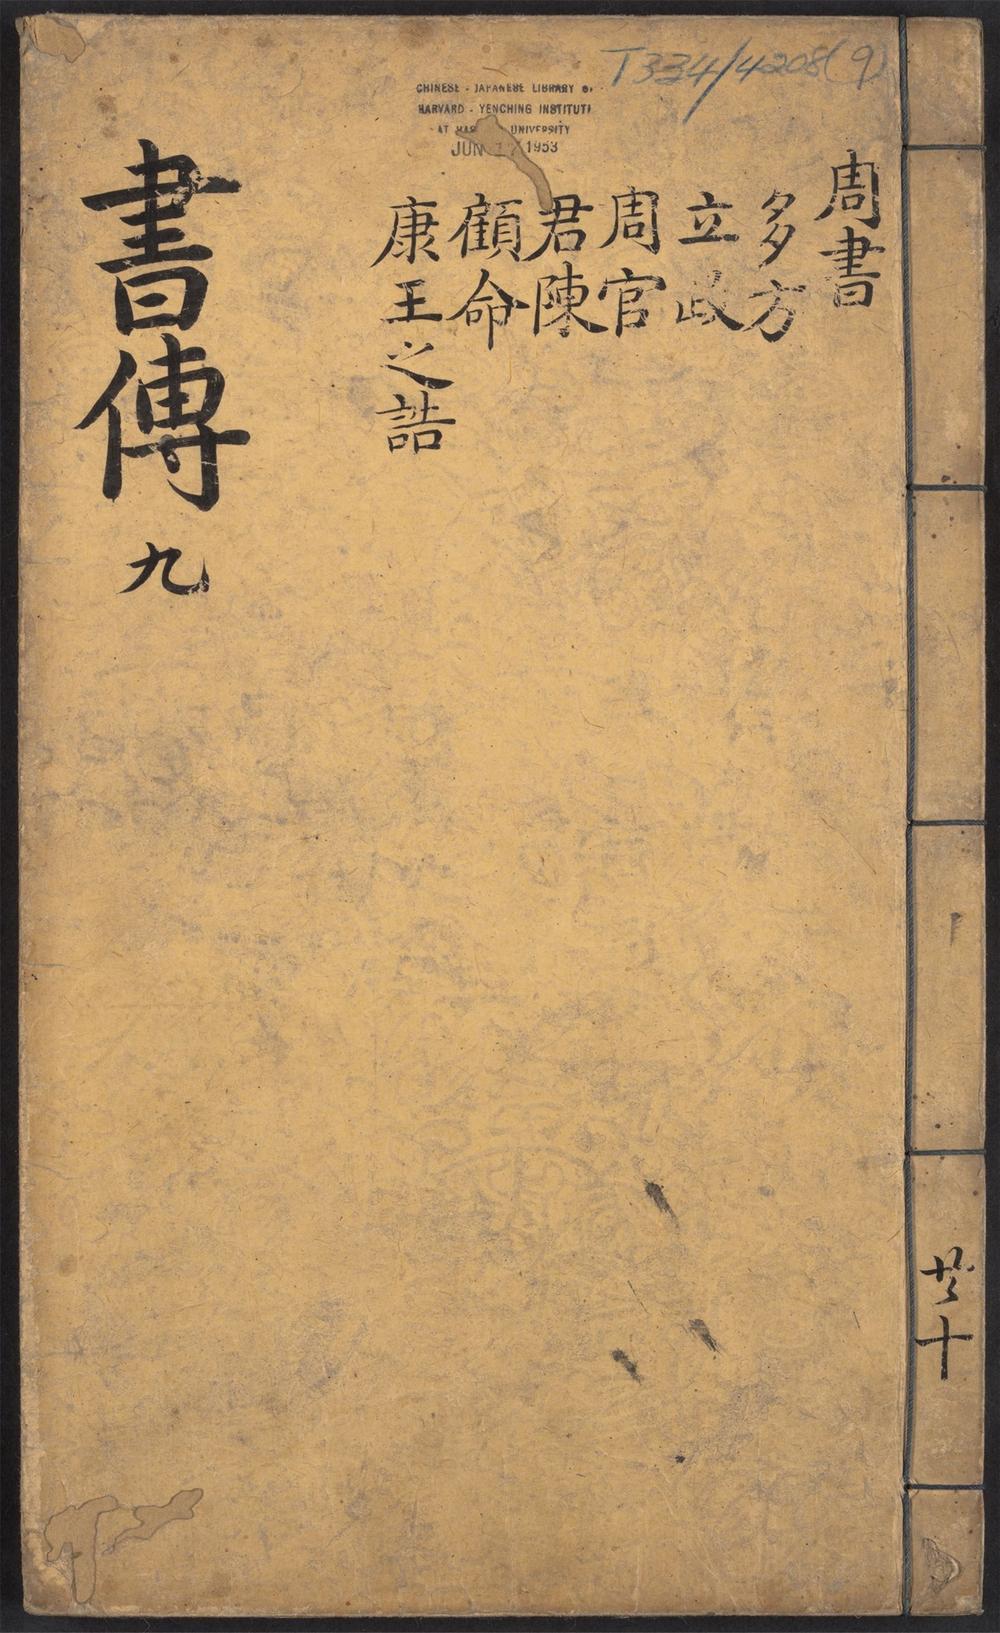 T334/4208(9)
CHINESE - JAPANESE LIBRARY
HARVARD - YENCHING INSTITUTE
AT HARVARD UNIVERSITY
JUN 17 1953
周書
多方
立政
周官
君陳
顧命
康王之誥
書傳
九
十